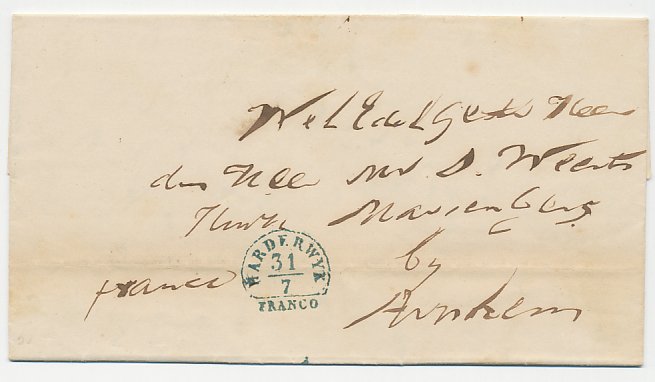 WelEdelGestr Heer
den Heer Mr D. Weerts
Huize Marienberg
by
Arnhem
franco
HARDERWYK
31
7
FRANCO